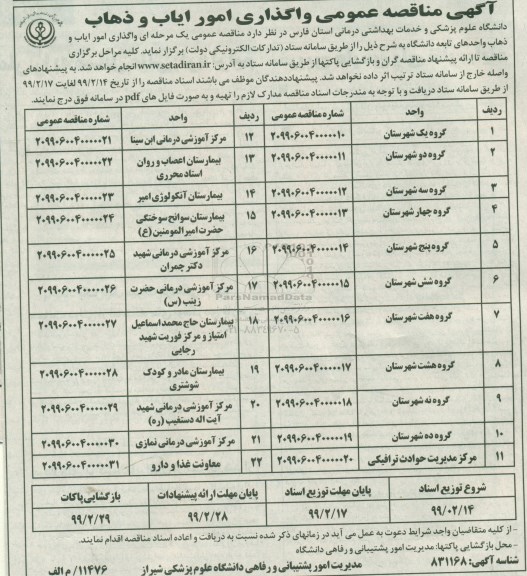 آگهی مناقصه عمومی واگذاری امور ایاب و ذهاب
دانشگاه علوم پزشکی و خدمات بهداشتی درمانی استان فارس در نظر دارد مناقصه عمومی یک مرحله ای واگذاری امور ایاب و
ذهاب واحدهای تابعه دانشگاه به شرح ذیل را از طریق سامانه ستاد (تدارکات الکترونیکی دولت) برگزار نماید. کلیه مراحل برگزاری
مناقصه تا ارائه پیشنهاد مناقصه گران و بازگشایی پاکتها از طریق سامانه ستاد به آدرس: www.setadiran.ir انجام خواهد شد. به پیشنهادهای
واصله خارج از سامانه ستاد ترتیب اثر داده نخواهد شد. پیشنهاددهندگان موظف می باشند اسناد مناقصه را از تاریخ ۹۹/۲/۱۴ لغایت ۹۹/۲/۱۷
از طریق سامانه ستاد دریافت و با توجه به مندرجات اسناد مناقصه مدارک لازم را تهیه و به صورت فایل های pdf در سامانه فوق درج نمایند.
ردیف واحد شماره مناقصه عمومی ردیف واحد شماره مناقصه عمومی
۱ گروه یک شهرستان ۲۰۹۹۰۶۰۰۴۰۰۰۰۰۱۰ ۱۲ مرکز آموزشی درمانی ابن سینا ۲۰۹۹۰۶۰۰۴۰۰۰۰۰۲۱
۲ گروه دو شهرستان ۲۰۹۹۰۶۰۰۴۰۰۰۰۰۱۱ ۱۳ بیمارستان اعصاب و روان استاد محرری ۲۰۹۹۰۶۰۰۴۰۰۰۰۰۲۲
۳ گروه سه شهرستان ۲۰۹۹۰۶۰۰۴۰۰۰۰۰۱۲ ۱۴ بیمارستان آنکولوژی امیر ۲۰۹۹۰۶۰۰۴۰۰۰۰۰۲۳
۴ گروه چهار شهرستان ۲۰۹۹۰۶۰۰۴۰۰۰۰۰۱۳ ۱۵ بیمارستان سوانح سوختگی حضرت امیرالمومنین (ع) ۲۰۹۹۰۶۰۰۴۰۰۰۰۰۲۴
۵ گروه پنج شهرستان ۲۰۹۹۰۶۰۰۴۰۰۰۰۰۱۴ ۱۶ مرکز آموزشی درمانی شهید دکتر چمران ۲۰۹۹۰۶۰۰۴۰۰۰۰۰۲۵
۶ گروه شش شهرستان ۲۰۹۹۰۶۰۰۴۰۰۰۰۰۱۵ ۱۷ مرکز آموزشی درمانی حضرت زینب (س) ۲۰۹۹۰۶۰۰۴۰۰۰۰۰۲۶
۷ گروه هفت شهرستان ۲۰۹۹۰۶۰۰۴۰۰۰۰۰۱۶ ۱۸ بیمارستان حاج محمد اسماعیل امتیاز و مرکز فوریت شهید رجایی ۲۰۹۹۰۶۰۰۴۰۰۰۰۰۲۷
۸ گروه هشت شهرستان ۲۰۹۹۰۶۰۰۴۰۰۰۰۰۱۷ ۱۹ بیمارستان مادر و کودک شوشتری ۲۰۹۹۰۶۰۰۴۰۰۰۰۰۲۸
۹ گروه نه شهرستان ۲۰۹۹۰۶۰۰۴۰۰۰۰۰۱۸ ۲۰ مرکز آموزشی درمانی شهید آیت اله دستغیب (ره) ۲۰۹۹۰۶۰۰۴۰۰۰۰۰۲۹
۱۰ گروه ده شهرستان ۲۰۹۹۰۶۰۰۴۰۰۰۰۰۱۹ ۲۱ مرکز آموزشی درمانی نمازی ۲۰۹۹۰۶۰۰۴۰۰۰۰۰۳۰
۱۱ مرکز مدیریت حوادث ترافیکی ۲۰۹۹۰۶۰۰۴۰۰۰۰۰۲۰ ۲۲ معاونت غذا و دارو ۲۰۹۹۰۶۰۰۴۰۰۰۰۰۳۱
شروع توزیع اسناد پایان مهلت توزیع اسناد پایان مهلت ارائه پیشنهادات بازگشایی پاکات
۹۹/۰۲/۱۴ ۹۹/۲/۱۷ ۹۹/۲/۲۸ ۹۹/۲/۲۹
- از کلیه متقاضیان واجد شرایط دعوت به عمل می آید در زمانهای ذکر شده نسبت به دریافت و اعاده اسناد مناقصه اقدام نمایند.
- محل بازگشایی پاکتها: مدیریت امور پشتیبانی و رفاهی دانشگاه
شناسه آگهی: ۸۳۱۱۶۸ مدیریت امور پشتیبانی و رفاهی دانشگاه علوم پزشکی شیراز ۱۱۴۷۶/ م الف